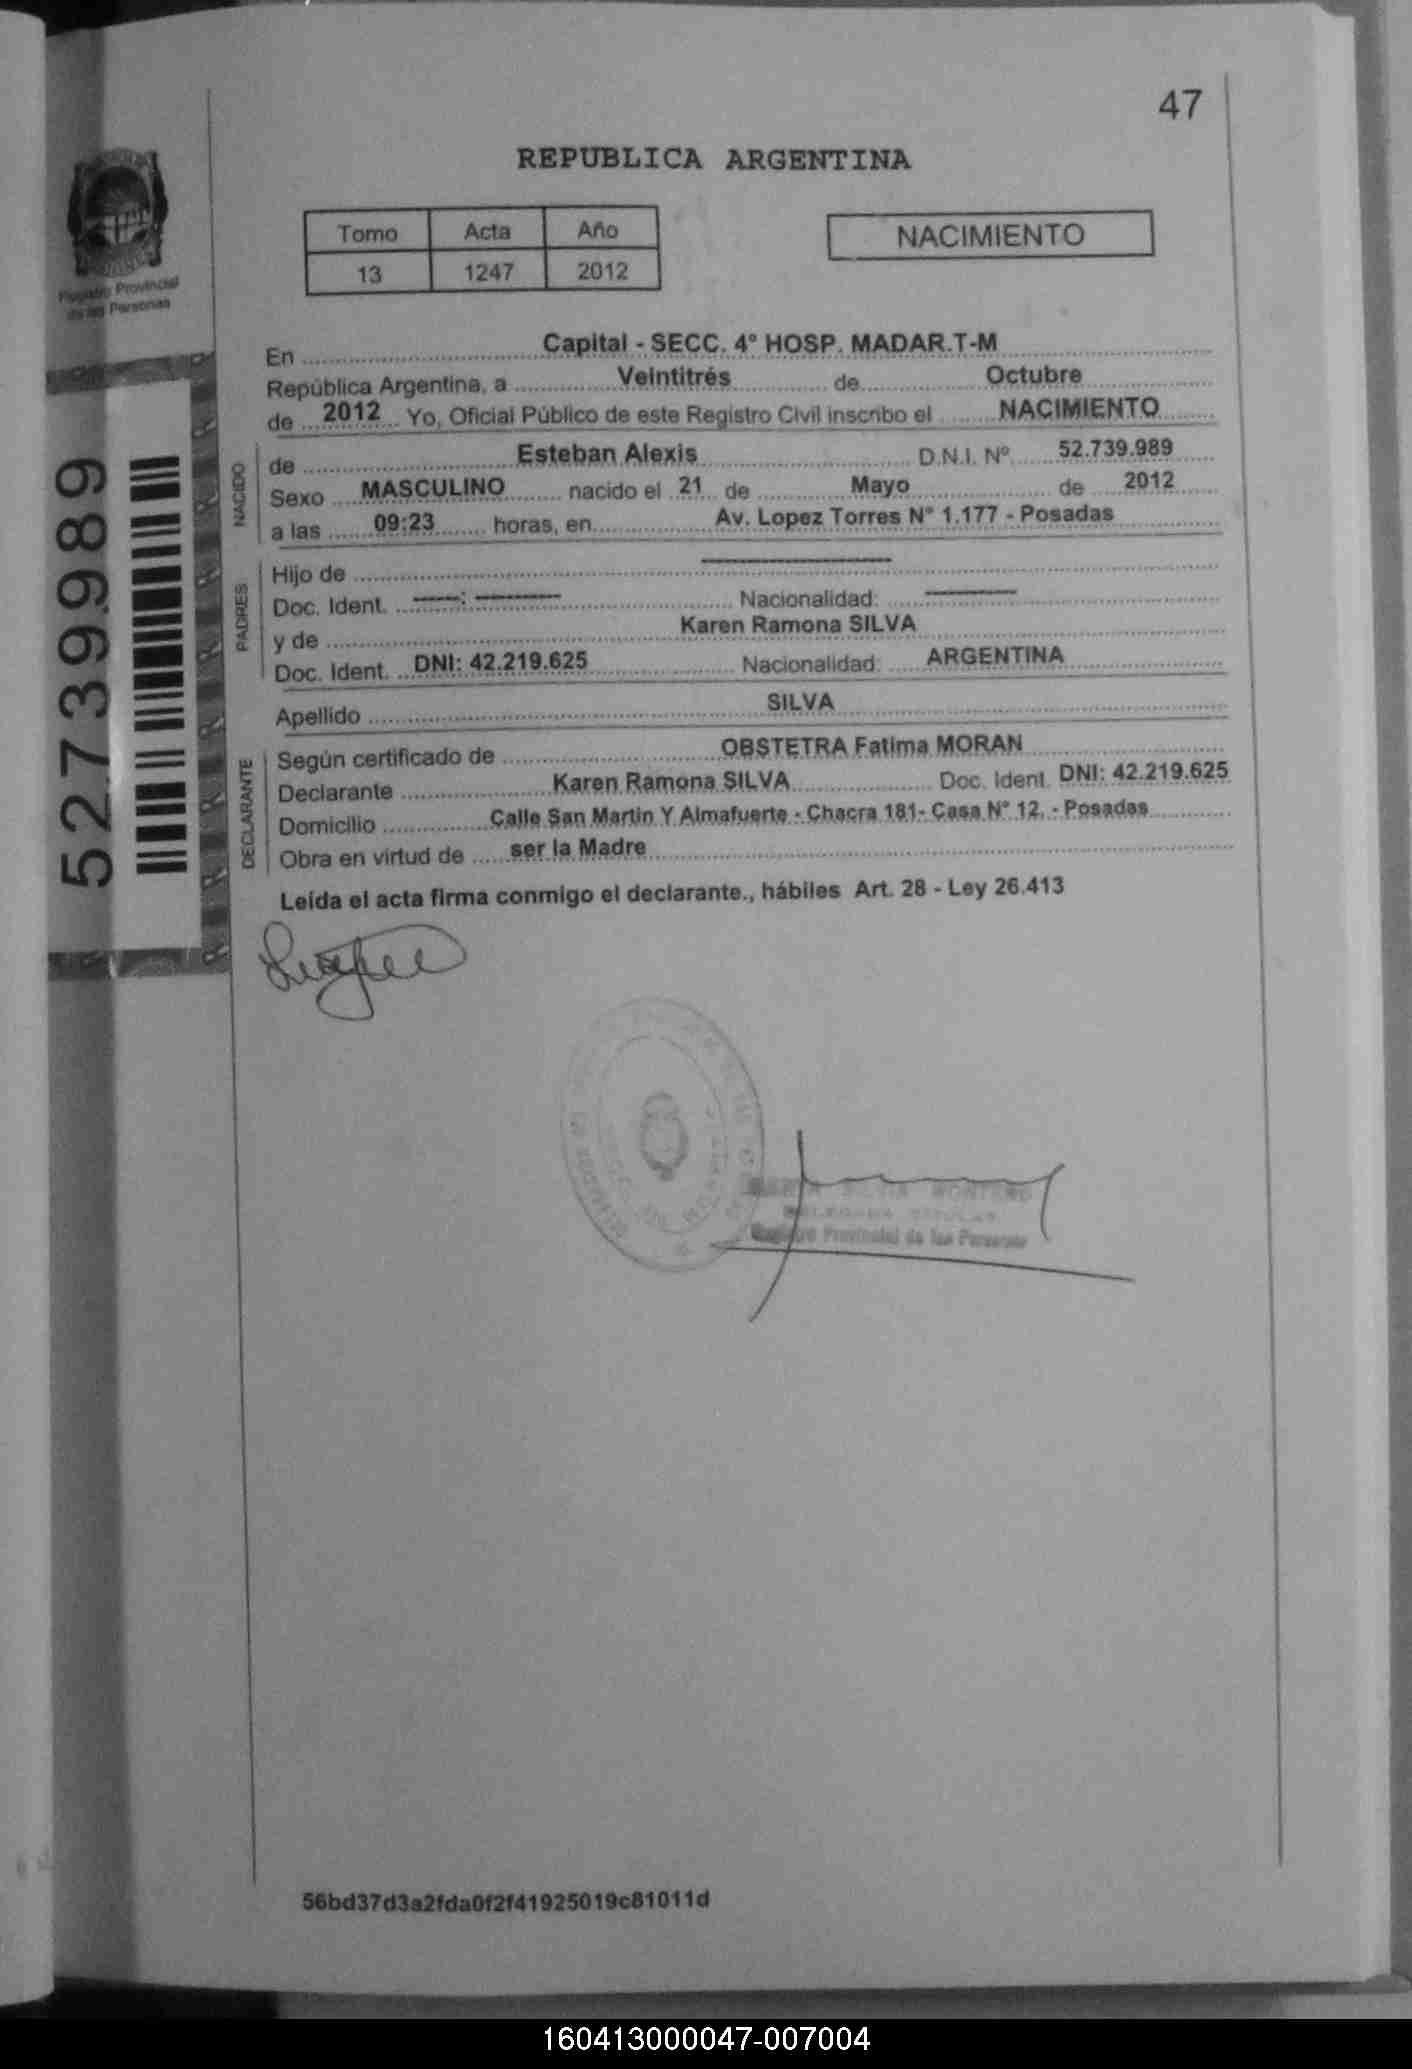 47
REPUBLICA ARGENTINA
Tomo Acta Año
13 1247 2012
NACIMIENTO
Registro Provincial
de las Personas
52739989
En Capital - SECC. 4° HOSP. MADAR.T-M
República Argentina, a Veintitrés de Octubre
de 2012 Yo, Oficial Público de este Registro Civil inscribo el NACIMIENTO
NACIDO
de Esteban Alexis D.N.I. Nº 52.739.989
Sexo MASCULINO nacido el 21 de Mayo de 2012
a las 09:23 horas, en Av. Lopez Torres N° 1.177 - Posadas
PADRES
Hijo de ----------
Doc. Ident. -----: --------- Nacionalidad: ----------
y de Karen Ramona SILVA
Doc. Ident. DNI: 42.219.625 Nacionalidad: ARGENTINA
Apellido SILVA
DECLARANTE
Según certificado de OBSTETRA Fatima MORAN
Declarante Karen Ramona SILVA Doc. Ident. DNI: 42.219.625
Domicilio Calle San Martin Y Almafuerte - Chacra 181- Casa N° 12. - Posadas
Obra en virtud de ser la Madre
Leída el acta firma conmigo el declarante., hábiles Art. 28 - Ley 26.413
SILVIA MONTERO
TITULAR
Registro Provincial de las Personas
56bd37d3a2fda0f2f41925019c81011d
160413000047-007004